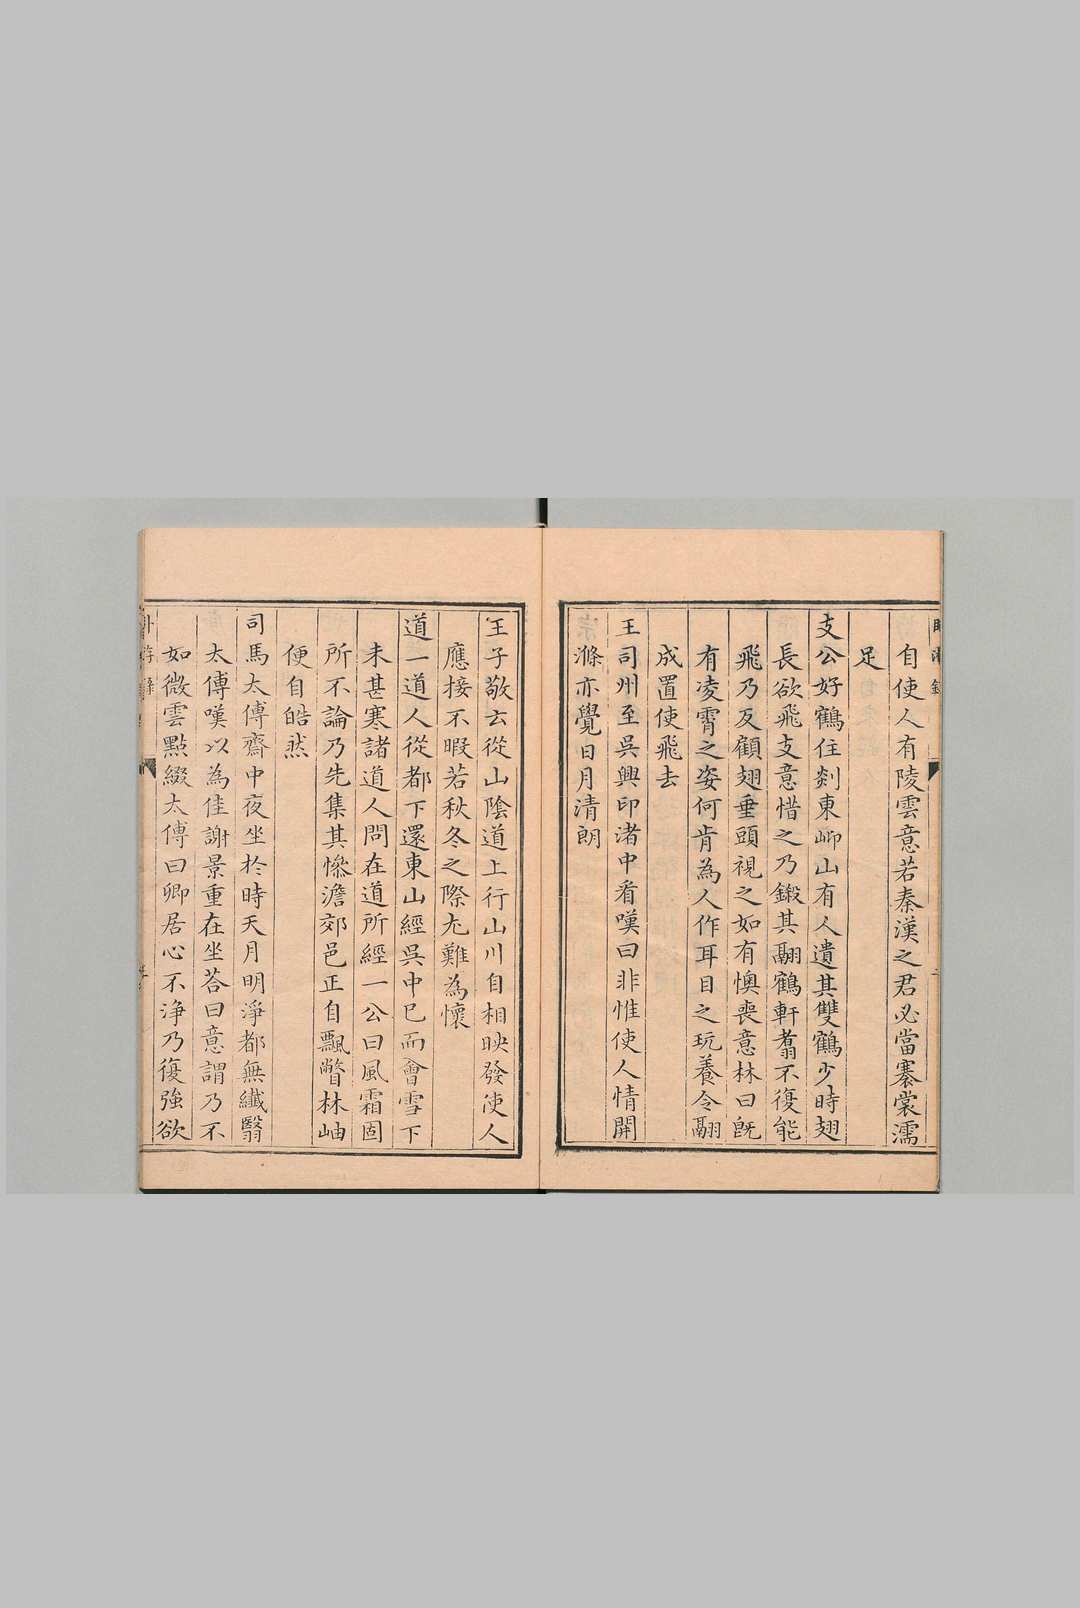 自使人有陵雲意若秦漢之君必當褰裳濡
足
支公好鶴住剡東岇山有人遺其雙鶴少時翅
長欲飛支意惜之乃鎩其翮鶴軒翥不復能
飛乃反顧翅垂頭視之如有懊喪意林曰既
有凌霄之姿何肯為人作耳目之玩養令翮
成置使飛去
王司州至吳興印渚中看嘆曰非惟使人情開
滌亦覺日月清朗
王子敬云從山陰道上行山川自相映發使人
應接不暇若秋冬之際尤難為懷
道一道人從都下還東山經吳中已而會雪下
未甚寒諸道人問在道所經一公曰風霜固
所不論乃先集其慘澹郊邑正自飄瞥林岫
便自皓然
司馬太傅齋中夜坐於時天月明淨都無纖翳
太傅嘆以為佳謝景重在坐荅曰意謂乃不
如微雲點綴太傅曰卿居心不淨乃復強欲